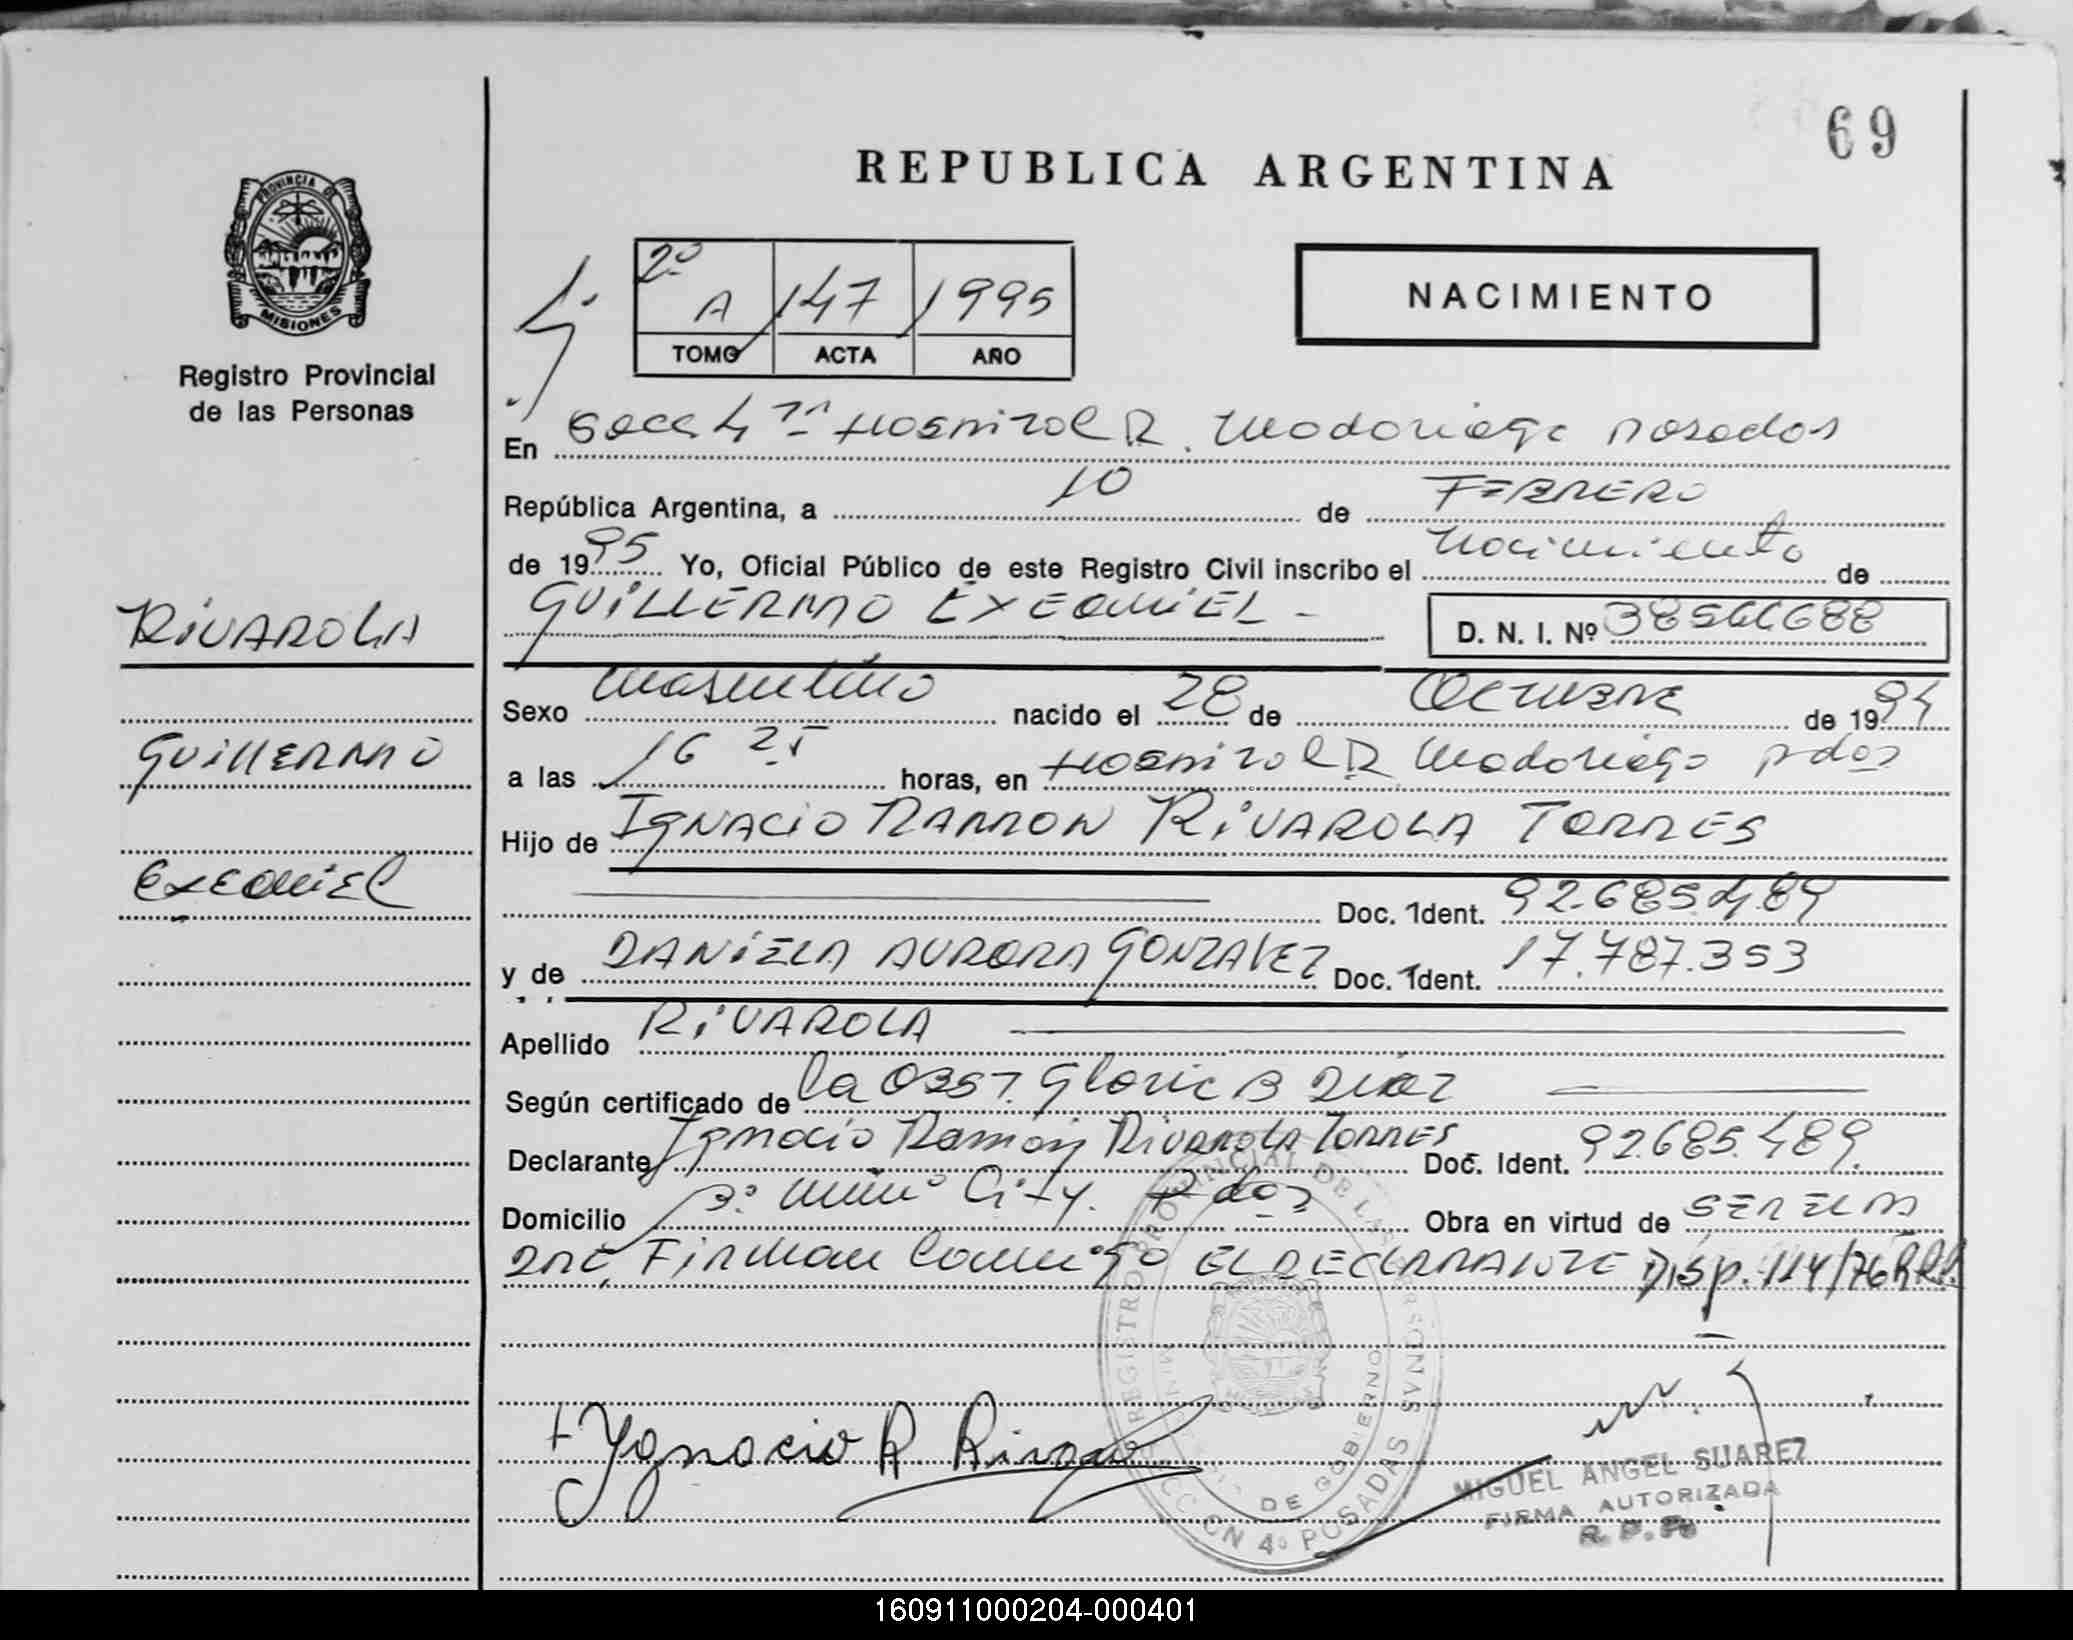 69
REPUBLICA ARGENTINA
PROVINCIA DE
MISIONES
Registro Provincial
de las Personas
2º A 147 1995
TOMO ACTA AÑO
NACIMIENTO
En Secc 4ta Hospital R. Madariaga Posadas
República Argentina, a 10 de FEBRERO
de 1995 Yo, Oficial Público de este Registro Civil inscribo el Nacimiento de
GUILLERMO EXEQUIEL - D. N. I. Nº
RIVAROLA
Sexo Masculino nacido el 28 de OCTUBRE de 1994
GUILLERMO
a las 16 25 horas, en Hospital R Madariaga Pdas
Hijo de IGNACIO RAMON RIVAROLA TORRES
EXEQUIEL
Doc. Ident. 92.685.489
y de DANIELA AURORA GONZALEZ Doc. Ident. 17.787.353
Apellido RIVAROLA
Según certificado de la OBST. Gloria B Diaz
Declarante Ignacio Ramón Rivarola TORRES Doc. Ident. 92.685.489.
Domicilio Bº City. Pdas Obra en virtud de SER EL
Firman Conmigo EL DECLARANTE Disp. 114/76
REGISTRO PROVINCIAL DE LAS PERSONAS
DE GOBIERNO
SECCION 4º POSADAS
Ygnacio R. Rivarola
MIGUEL ANGEL SUAREZ
FIRMA AUTORIZADA
R. P. P.
160911000204-000401